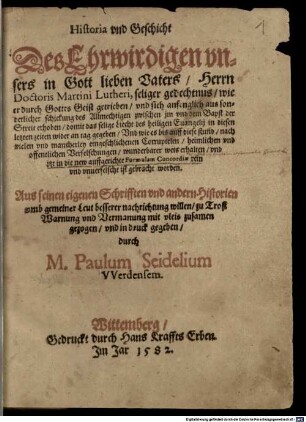 Historia vnd Geschicht
Des Ehrwirdigen vn-
sers in Gott lieben Vaters / Herrn
Doctoris Martini Lutheri, seliger gedechtnis / wie
er durch Gottes Geist getrieben / vnd sich anfenglich aus son-
derlicher schickung des Allmechtigen zwischen jm vnd dem Bapst der
Streit erhoben / damit das selige Liecht des heiligen Euangelij in diesen
letzten zeiten wider an tag gegeben / Vnd wie es bis auff diese stund / nach
vielen vnd mancherley eingeschlichenen Corruptelen / heimlichen vnd
offentlichen Verfelschungen / wunderbarer weis erhalten / vnd
itzt in die new auffgerichte Formulam Concordiæ rein
vnd vnuerfelscht ist gebracht worden.
Aus seinen eigenen Schrifften vnd andern Historien
vmb gemeiner Leut besserer nachrichtung willen / zu Trost
Warnung vnd Vermanung mit vleis zusamen
gezogen / vnd in druck gegeben /
durch
M. Paulum Seidelium
VVerdensem.
Wittemberg /
Gedruckt durch Hans Kraffts Erben.
Im Jar 1582.